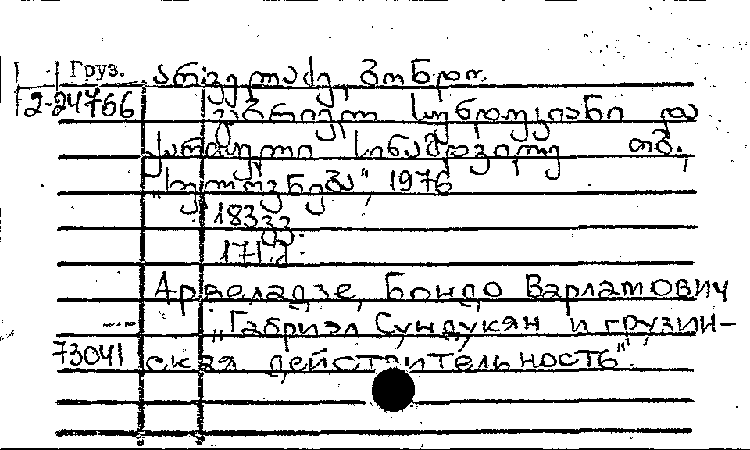 Груз. არველაძე, ბონდო.
2-24766 გაბრიელ სუნდუკიანი და
ქართული სინამდვილე თბ.,
„ხელოვნება", 1976
183 გვ.
Арвеладзе, Бондо Варламович
„Габриэл Сундукян и грузин-
73041 ская действительность".